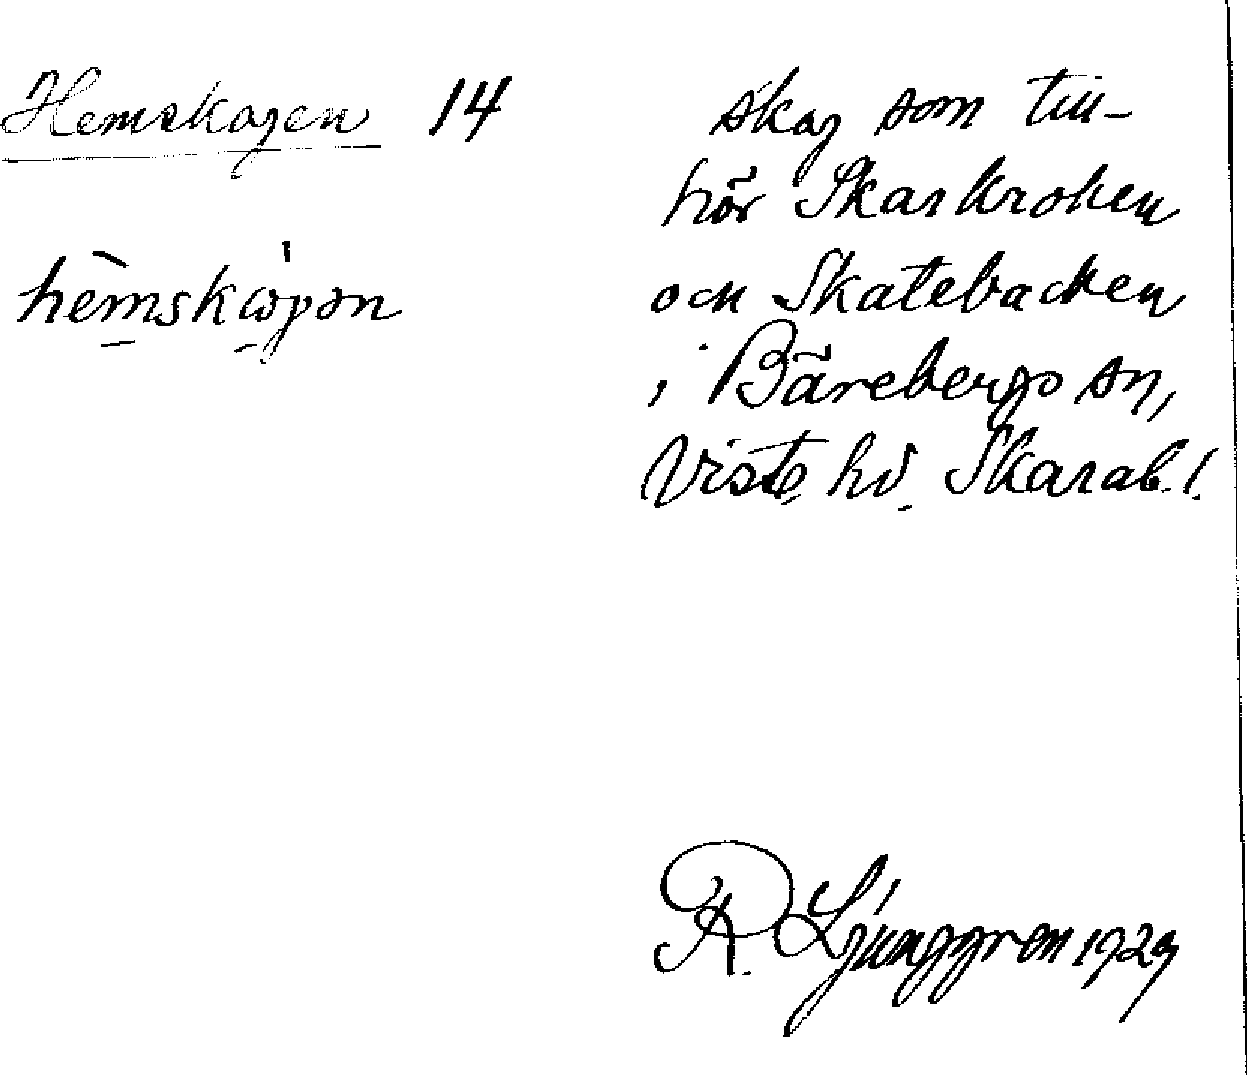 Hemskogen 14
hèmskωgən
skog som till-
hör Skarkroken
och Skatebacken
i Bärebergs sn,
Viste hd. Skarab. l.
R. Ljunggren 1929